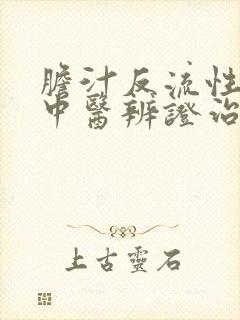 膽汁反流性
中醫辨證治
上古靈石